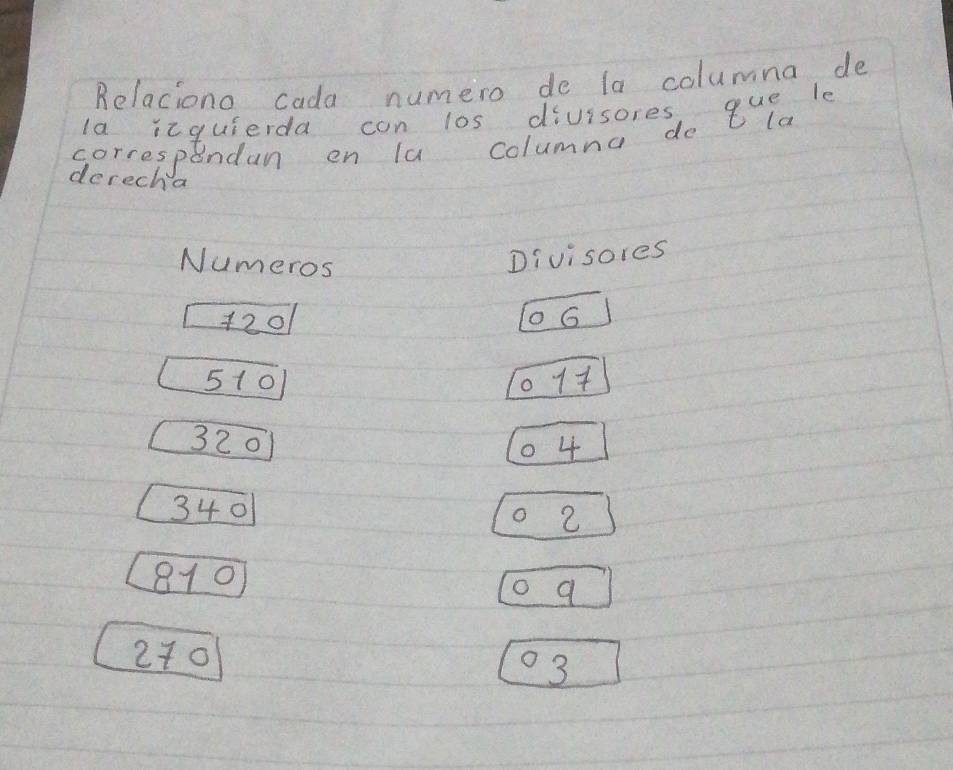 Relaciono cada numero de la columna de
la izquierda con los divisores que le
correspondan en la columna de la
derecha
Numeros Divisores
720 o 6
510 o 17
320 o 4
340 o 2
810 o 9
270 o 3